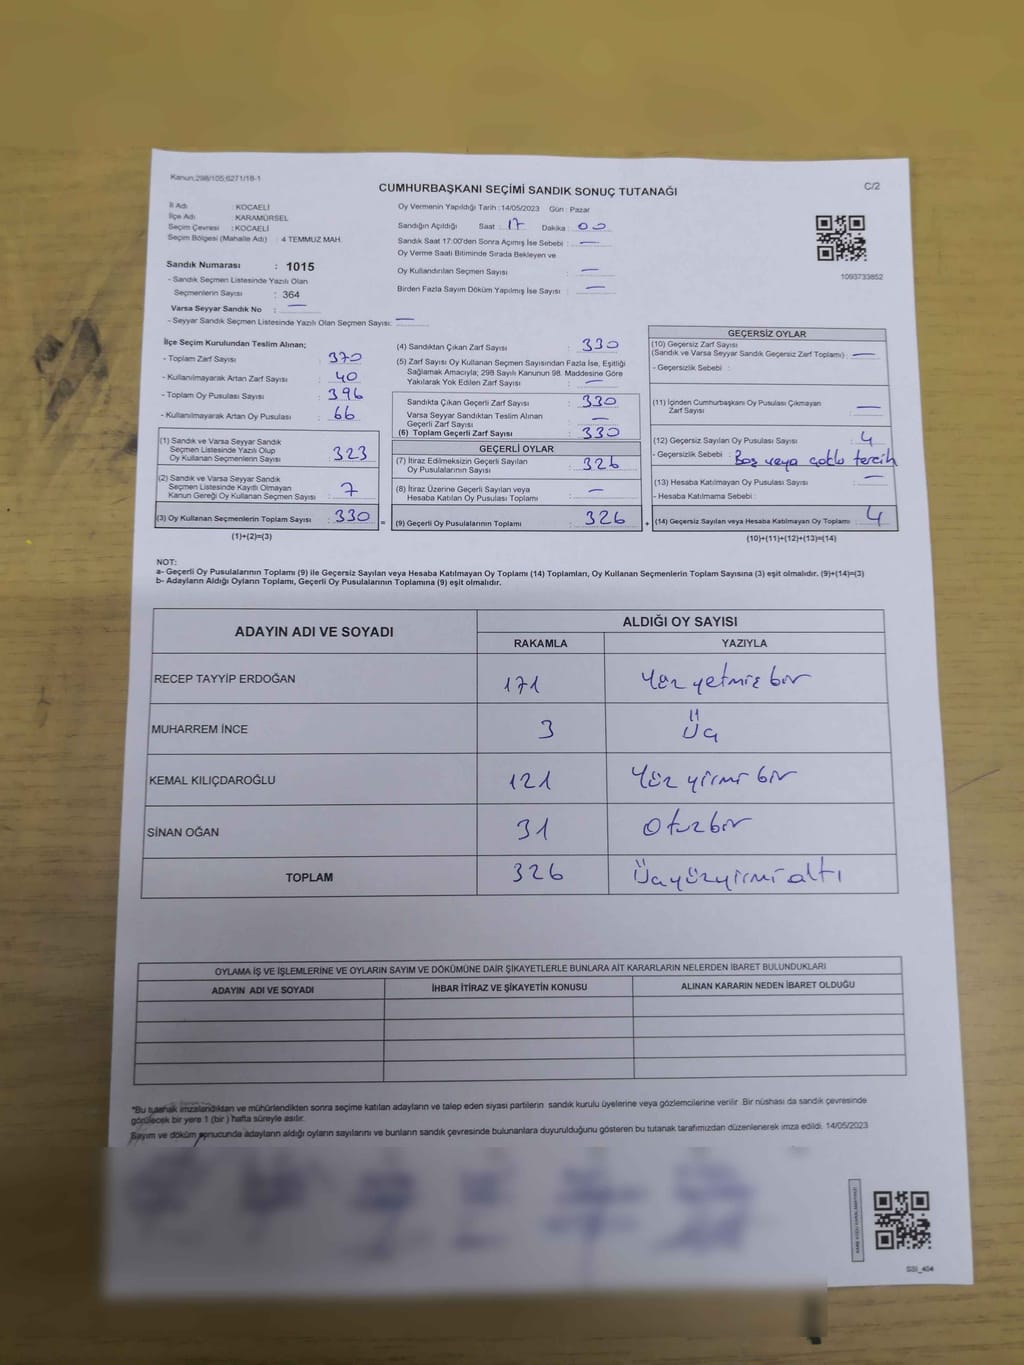 Kanun;298/105;6271/18-1
CUMHURBAŞKANI SEÇİMİ SANDIK SONUÇ TUTANAĞI
C/2
İl Adı : KOCAELİ
İlçe Adı : KARAMÜRSEL
Seçim Çevresi : KOCAELİ
Seçim Bölgesi (Mahalle Adı) : 4 TEMMUZ MAH.
Sandık Numarası : 1015
- Sandık Seçmen Listesinde Yazılı Olan
Seçmenlerin Sayısı : 364
Varsa Seyyar Sandık No : —
- Seyyar Sandık Seçmen Listesinde Yazılı Olan Seçmen Sayısı: —
Oy Vermenin Yapıldığı Tarih :14/05/2023 Gün : Pazar
Sandığın Açıldığı Saat : 17 Dakika : 00
Sandık Saat 17:00'den Sonra Açımış İse Sebebi : —
Oy Verme Saati Bitiminde Sırada Bekleyen ve
Oy Kullandırılan Seçmen Sayısı : —
Birden Fazla Sayım Döküm Yapılmış İse Sayısı : —
1093733852
İlçe Seçim Kurulundan Teslim Alınan;
- Toplam Zarf Sayısı : 370
- Kullanılmayarak Artan Zarf Sayısı : 40
- Toplam Oy Pusulası Sayısı : 396
- Kullanılmayarak Artan Oy Pusulası : 66
(1) Sandık ve Varsa Seyyar Sandık
Seçmen Listesinde Yazılı Olup
Oy Kullanan Seçmenlerin Sayısı : 323
(2) Sandık ve Varsa Seyyar Sandık
Seçmen Listesinde Kayıtlı Olmayan
Kanun Gereği Oy Kullanan Seçmen Sayısı : 7
(3) Oy Kullanan Seçmenlerin Toplam Sayısı : 330
(1)+(2)=(3)
(4) Sandıktan Çıkan Zarf Sayısı : 330
(5) Zarf Sayısı Oy Kullanan Seçmen Sayısından Fazla İse, Eşitliği
Sağlamak Amacıyla; 298 Sayılı Kanunun 98. Maddesine Göre
Yakılarak Yok Edilen Zarf Sayısı : —
Sandıkta Çıkan Geçerli Zarf Sayısı : 330
Varsa Seyyar Sandıktan Teslim Alınan
Geçerli Zarf Sayısı : —
(6) Toplam Geçerli Zarf Sayısı : 330
GEÇERLİ OYLAR
(7) İtiraz Edilmeksizin Geçerli Sayılan
Oy Pusulalarının Sayısı : 326
(8) İtiraz Üzerine Geçerli Sayılan veya
Hesaba Katılan Oy Pusulası Toplamı : —
= (9) Geçerli Oy Pusulalarının Toplamı : 326
GEÇERSİZ OYLAR
(10) Geçersiz Zarf Sayısı
(Sandık ve Varsa Seyyar Sandık Geçersiz Zarf Toplamı) : —
- Geçersizlik Sebebi :
(11) İçinden Cumhurbaşkanı Oy Pusulası Çıkmayan
Zarf Sayısı : —
(12) Geçersiz Sayılan Oy Pusulası Sayısı : 4
- Geçersizlik Sebebi : Boş veya çoklu tercih
(13) Hesaba Katılmayan Oy Pusulası Sayısı : —
- Hesaba Katılmama Sebebi :
+ (14) Geçersiz Sayılan veya Hesaba Katılmayan Oy Toplamı : 4
(10)+(11)+(12)+(13)=(14)
NOT:
a- Geçerli Oy Pusulalarının Toplamı (9) ile Geçersiz Sayılan veya Hesaba Katılmayan Oy Toplamı (14) Toplamları, Oy Kullanan Seçmenlerin Toplam Sayısına (3) eşit olmalıdır. (9)+(14)=(3)
b- Adayların Aldığı Oyların Toplamı, Geçerli Oy Pusulalarının Toplamına (9) eşit olmalıdır.
ADAYIN ADI VE SOYADI
ALDIĞI OY SAYISI
RAKAMLA YAZIYLA
RECEP TAYYİP ERDOĞAN 171 Yüz yetmiş bir
MUHARREM İNCE 3 Üç
KEMAL KILIÇDAROĞLU 121 Yüz yirmi bir
SİNAN OĞAN 31 Otuzbir
TOPLAM 326 Üçyüzyirmi altı
OYLAMA İŞ VE İŞLEMLERİNE VE OYLARIN SAYIM VE DÖKÜMÜNE DAİR ŞİKAYETLERLE BUNLARA AİT KARARLARIN NELERDEN İBARET BULUNDUKLARI
ADAYIN ADI VE SOYADI İHBAR İTİRAZ VE ŞİKAYETİN KONUSU ALINAN KARARIN NEDEN İBARET OLDUĞU
*Bu tutanak imzalandıktan ve mühürlendikten sonra seçime katılan adayların ve talep eden siyasi partilerin sandık kurulu üyelerine veya gözlemcilerine verilir. Bir nüshası da sandık çevresinde
görülecek bir yere 1 (bir ) hafta süreyle asılır.
Sayım ve döküm sonucunda adayların aldığı oyların sayılarını ve bunların sandık çevresinde bulunanlara duyurulduğunu gösteren bu tutanak tarafımızdan düzenlenerek imza edildi. 14/05/2023